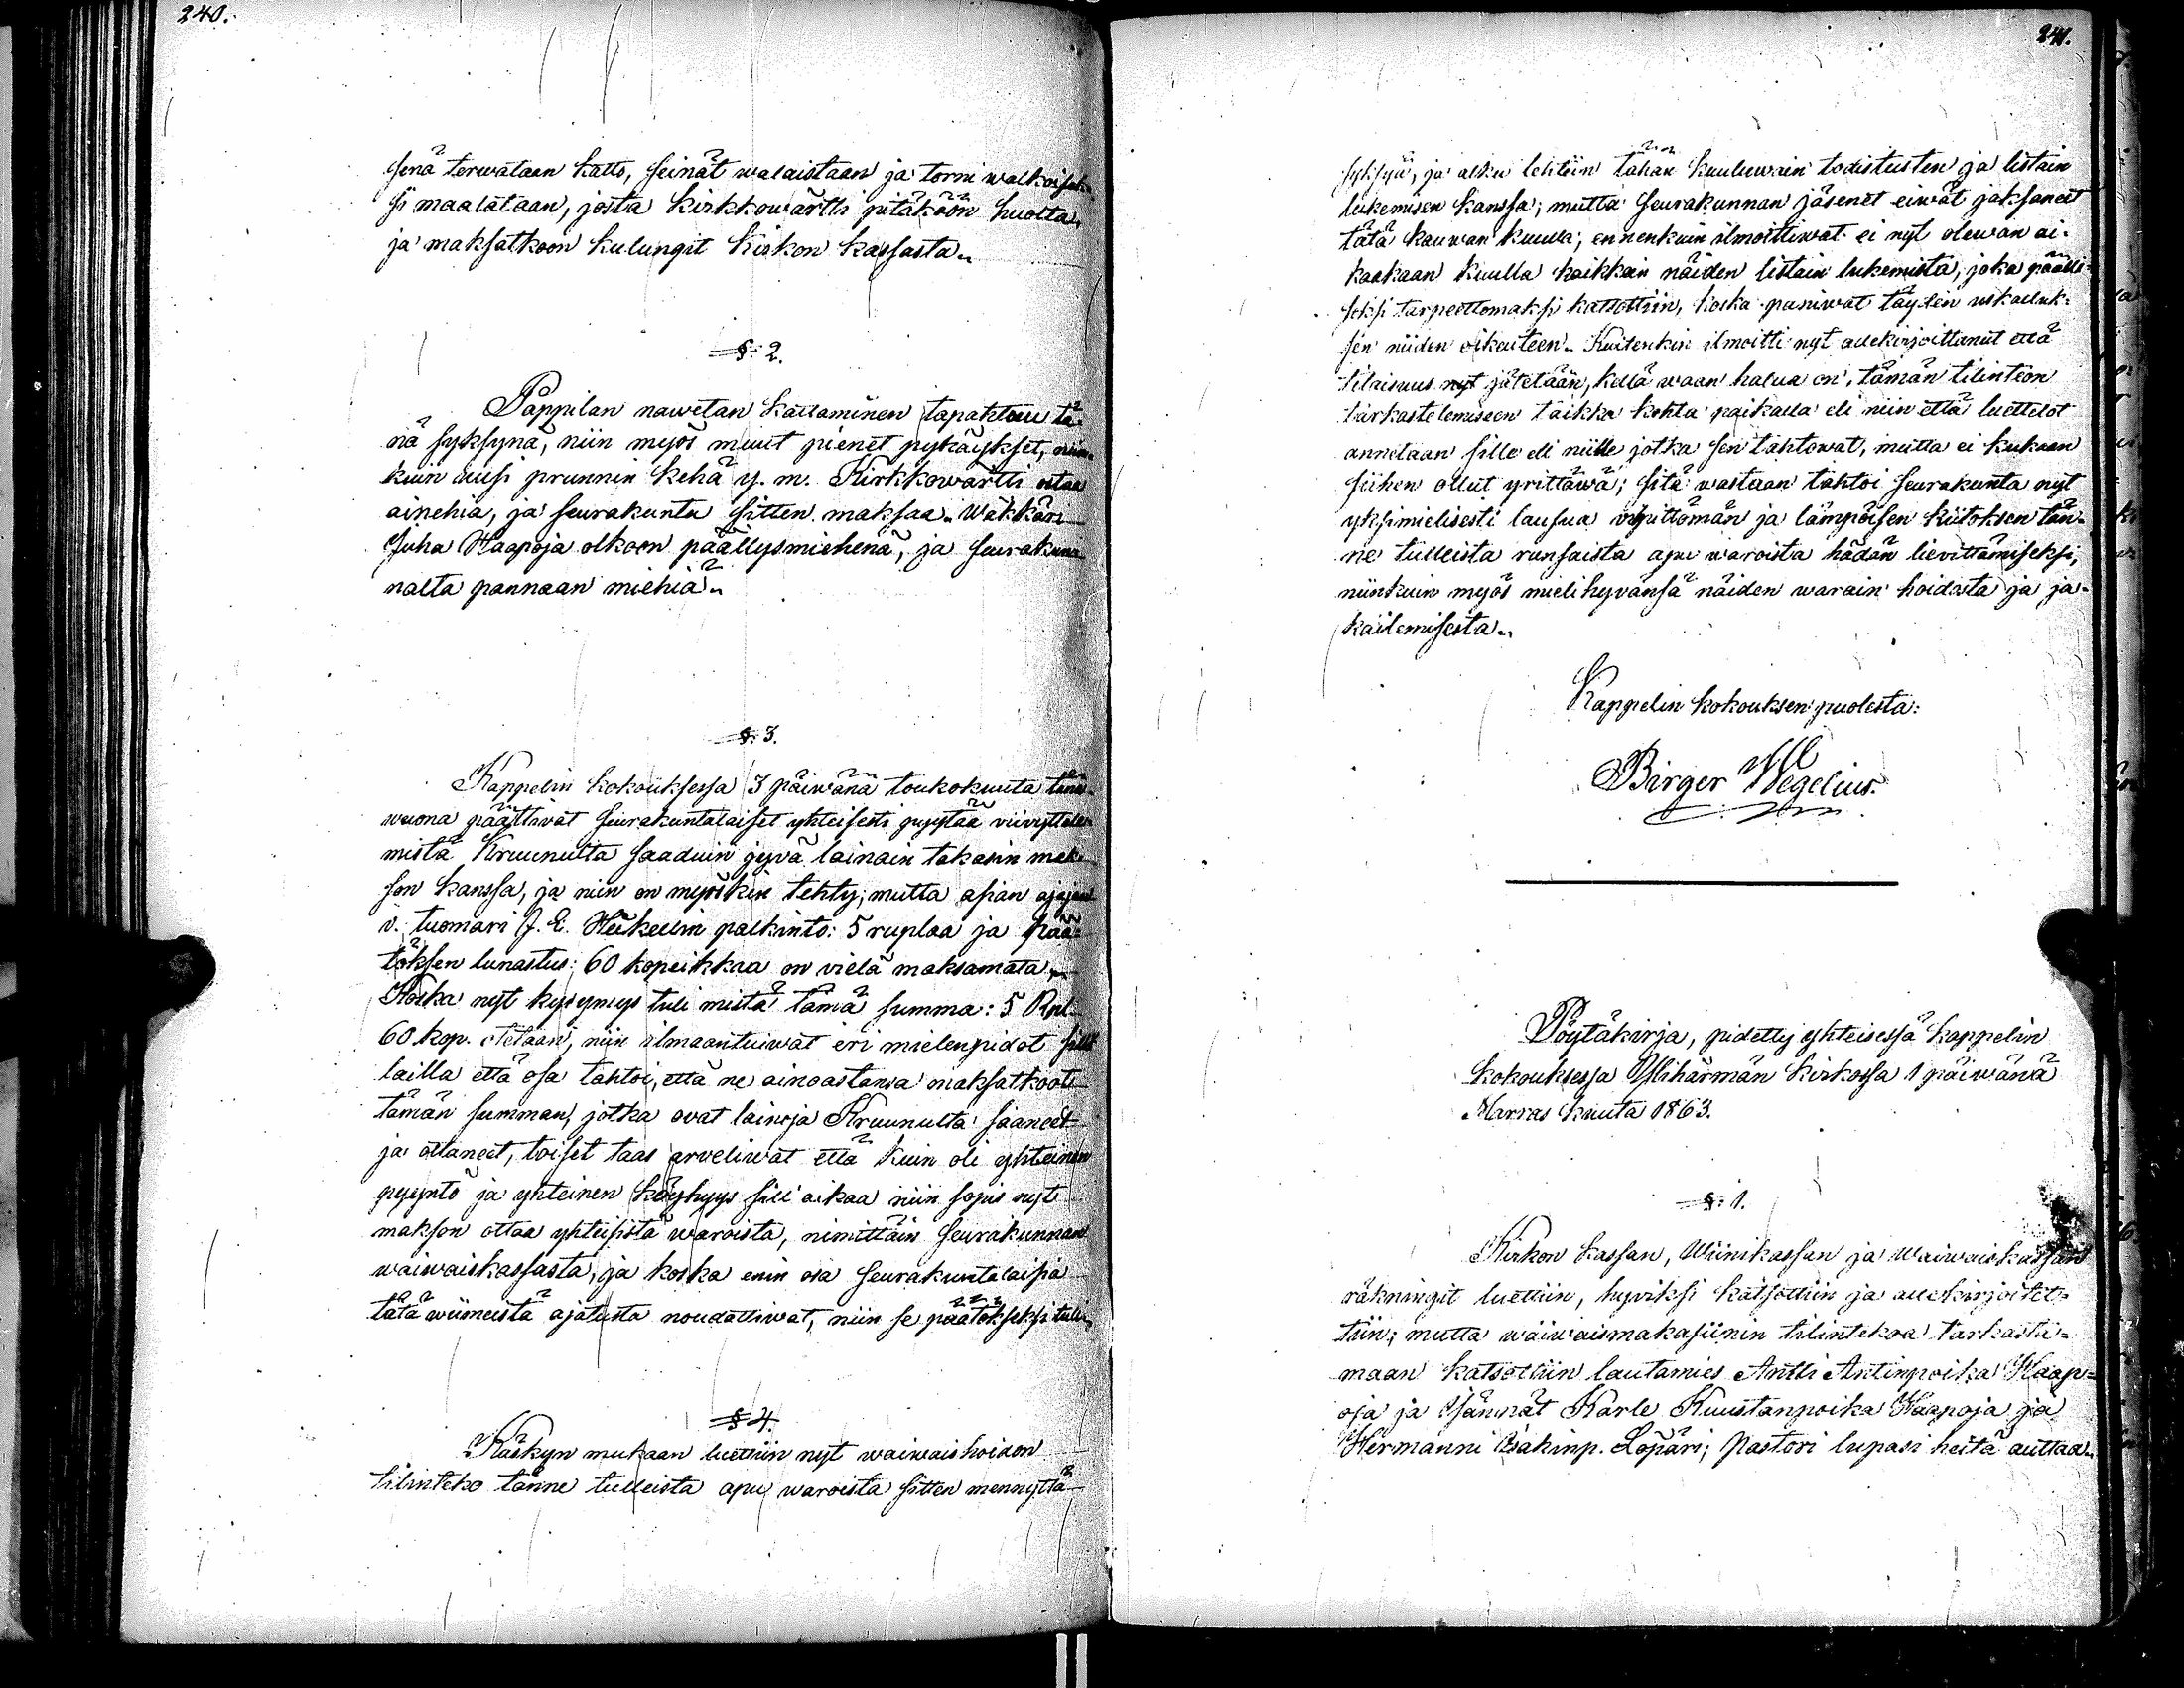 240.
senä terwataan katto, seinät walaistaan ja torni walkoisek-
si maalataan, josta Kirkkowärtti pitäköön huolta,
ja maksatkoon kulungit Kirkon kassasta.
§. 2.
Pappilan nawetan kattaminen tapahtuu tä-
nä syksynä, niin myös muut pienet pykäykset, niin-
kuin uusi prunnin kehä y. m. Kirkkowärtti ostaa
ainehia, ja seurakunta sitten maksaa. Wäkkäri
Juha Haapoja olkoon päällysmiehenä, ja seurakun-
nalta pannaan miehiä.
§. 3.
Kappelin kokouksessa 3 päiwänä toukokuuta tänä
wuona päättiwät seurakuntalaiset yhteisesti pyytää viivyttele-
mistä Kruunulta saaduin jyvä lainain takasin mak-
son kanssa, ja niin on myöskin tehty; mutta asian ajajan
v. tuomari J. E. Heikelin palkinto: 5 ruplaa ja pää-
töksen lunastus: 60 kopeikkaa on vielä maksamata.
Koska nyt kysymys tuli mistä tämä summa: 5 Rpl.
60 kop. otetaan, niin ilmaantuiwat eri mielenpidot sillä
lailla että osa tahtoi, että ne ainoastansa maksatkoot
tämän summan, jotka ovat lainoja Kruunulta saaneet
ja ottaneet, toiset taas arveliwat että kuin oli yhteinen
pyyntö ja yhteinen köyhyys sill aikaa niin sopis nyt
makson ottaa yhteisistä waroista, nimittäin seurakunnan
waiwaiskassasta, ja koska enin osa seurakuntalaisia
tätä wiimeistä ajatusta noudattiwat, niin se päätökseksi tuli.
§ 4.
Käskyn mukaan luettiin nyt waiwaishoidon
tilinteko tänne tulleista apu waroista sitten mennyttä
241.
syksyä, ja alku tehtiin tähän kuuluwain todistusten ja listain
lukemisen kanssa; mutta seurakunnan jäsenet eiwät jaksaneet
tätä kauwan kuulla, ennenkuin ilmoittiwat ei nyt olewan ai-
kaakaan kuulla kaikkein näiden listain lukemista, joka päälli-
seksi tarpeettomaksi katsottiin, koska paniwat täyden uskalluk-
sen niiden oikeuteen. Kuitenkin ilmoitti nyt allekirjoittanut että
tilaisuus nyt jätetään, kellä waan halua on, tämän tilinteon
tarkastelemiseen taikka kohta paikalla eli niin että luettelot
annetaan sille eli niille jotka sen tahtowat, mutta ei kukaan
siihen ollut yrittäwä; sitä wastaan tahtoi seurakunta nyt
yksimielisesti lausua vilpittömän ja lämpöisen kiitoksen tän-
ne tulleista runsaista apu waroista hädän lievittämiseksi,
niinkuin myös mielihyvänsä näiden warain hoidosta ja ja-
kailemisesta.
Kappelin kokouksen puolesta:
Birger Wegelius.
Pöytäkirja, pidetty yhteisessä kappelin
kokouksessa Ylihärmän kirkossa 1 päiwänä
Marras kuuta 1863.
§. 1.
Kirkon kassan, Wiinikassan ja waiwaiskassan
räkningit luettiin, hyviksi katsottiin ja allekirjoitet-
tiin; mutta waiwaismakasiinin tilintekoa tarkasta-
maan katsottiin lautamies Antti Antinpoika Haap-
oja ja Isännät Karle Kuustanpoika Haapoja ja
Hermanni Isakinp. Lopäri; Pastori lupasi heitä auttaa.